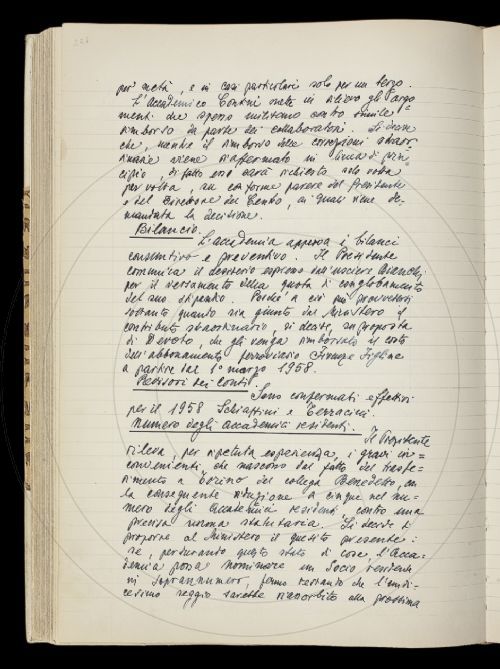 per metà, e in casi particolari solo per un terzo.
L'Accademico Contini mette in rilievo gli argo=
menti che spesso militano contro simile
rimborso da parte dei collaboratori. Si decide
che, mentre il rimborso delle correzioni straor=
dinarie viene riaffermato in linea di prin=
cipio, di fatto esso sarà richiesto solo volta
per volta, su conforme parere del Presidente
e del Direttore del Centro, ai quali viene de=
mandata la decisione.
Bilancio.
L'accademia approva i bilanci
consuntivo e preventivo. Il Presidente
comunica il desiderio espresso dall'usciere Bianchi
per il versamento della quota di conglobamento
del suo stipendio. Poiché a ciò può provvedersi
soltanto quando sia giunto dal Ministero il
contributo straordinario, si decide, su proposta
di Devoto, che gli venga rimborsato il costo
dell'abbonamento ferroviario Firenze Figline
a partire dal 1° marzo 1958.
Revisori dei Conti.
Sono confermati effettivi
per il 1958 Schiaffini e Terracini.
Numero degli accademici residenti.
Il Presidente
rileva, per ripetuta esperienza, i gravi in=
convenienti, che nascono dal fatto del trasfe=
rimento a Torino del collega Benedetto, con
la conseguente riduzione a cinque nel nu=
mero degli Accademici residenti, contro una
precisa norma statutaria. Si decide di
proporre al Ministero il quesito presente:
se, perdurando questo stato di cose, l'Acca=
demia possa nominare un Socio residente
in soprannumero, fermo restando che l'undi=
cesimo seggio sarebbe riassorbito alla prossima